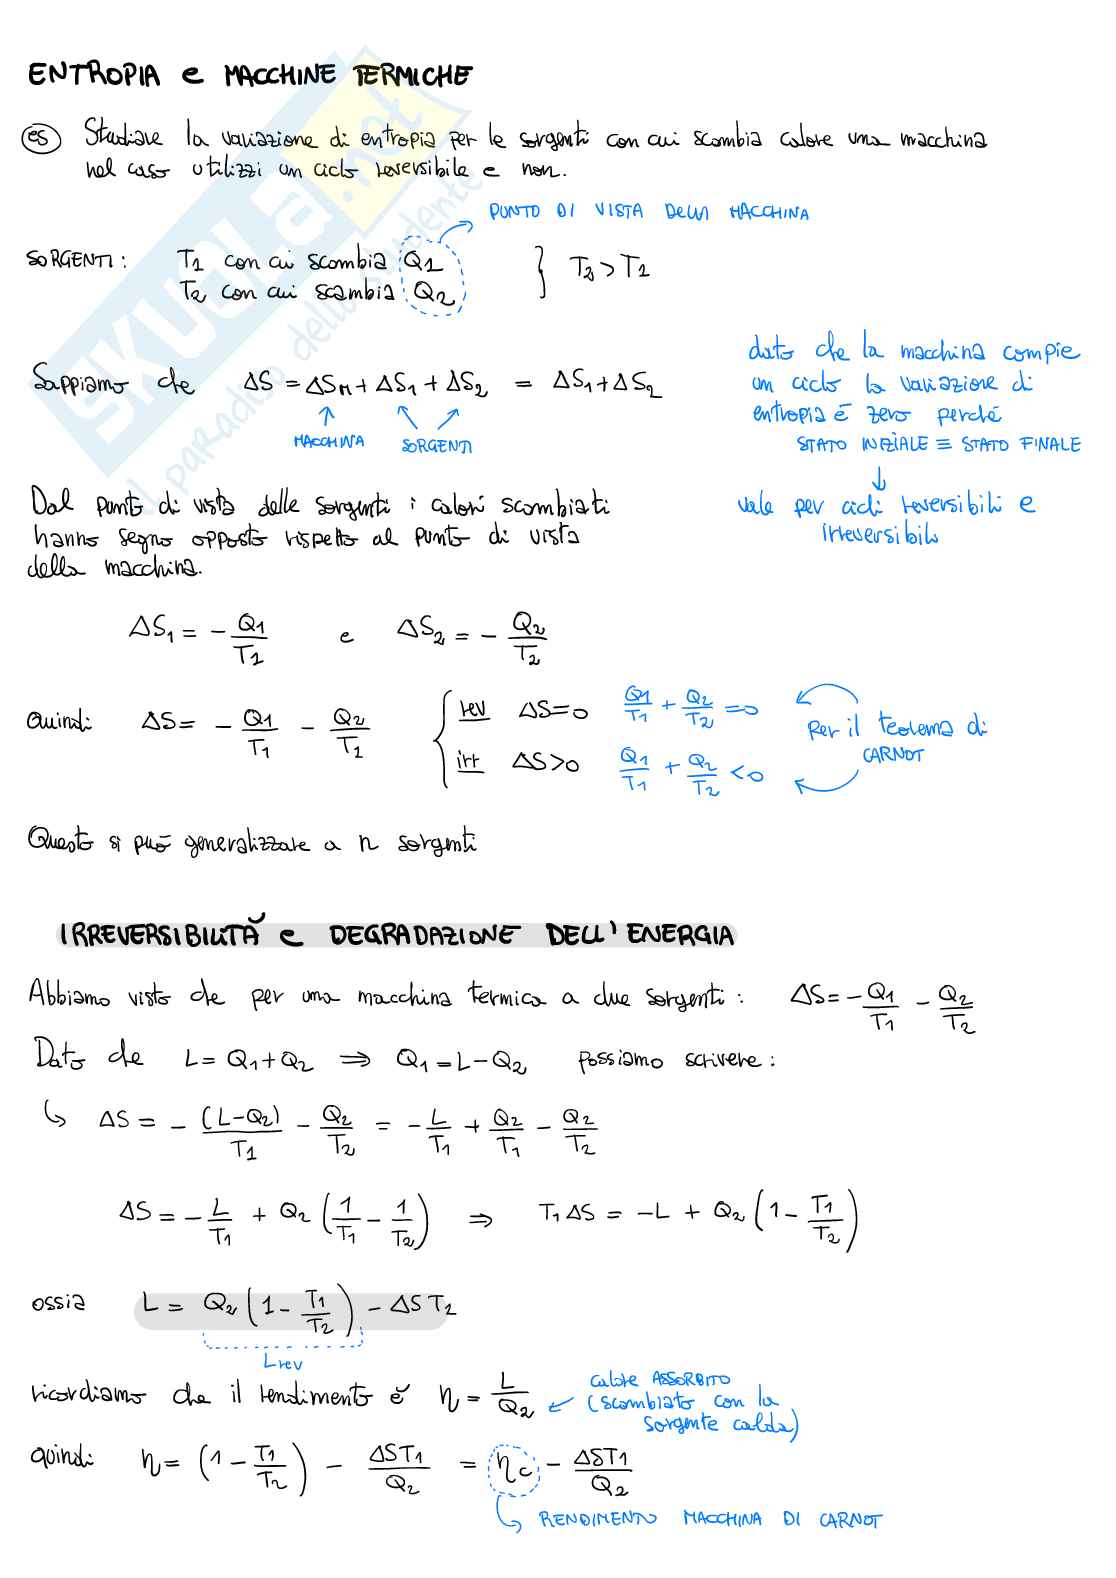 ENTROPIA e MACCHINE TERMICHE
es Studiare la variazione di entropia per le sorgenti con cui scambia calore una macchina
nel caso utilizzi un ciclo reversibile e non.
PUNTO DI VISTA DELLA MACCHINA
SORGENTI: T1 con cui scambia Q1
T2 con cui scambia Q2 } T2 > T1
Sappiamo che ΔS = ΔSM + ΔS1 + ΔS2 = ΔS1 + ΔS2
MACCHINA SORGENTI
dato che la macchina compie
un ciclo la variazione di
entropia è zero perché
STATO INIZIALE ≡ STATO FINALE
↓
vale per cicli reversibili e
irreversibili
Dal punto di vista delle sorgenti i calori scambiati
hanno segno opposto rispetto al punto di vista
della macchina.
ΔS1 = - Q1/T1 e ΔS2 = - Q2/T2
Quindi ΔS = - Q1/T1 - Q2/T2 { rev ΔS=0 Q1/T1 + Q2/T2 = 0
irr ΔS>0 Q1/T1 + Q2/T2 < 0
Per il teorema di
CARNOT
Questo si può generalizzare a n sorgenti
IRREVERSIBILITÀ e DEGRADAZIONE DELL'ENERGIA
Abbiamo visto che per una macchina termica a due sorgenti: ΔS = - Q1/T1 - Q2/T2
Dato che L = Q1 + Q2 ⇒ Q1 = L - Q2 possiamo scrivere:
↳ ΔS = - (L-Q2)/T1 - Q2/T2 = - L/T1 + Q2/T1 - Q2/T2
ΔS = - L/T1 + Q2 (1/T1 - 1/T2) ⇒ T1 ΔS = -L + Q2 (1 - T1/T2)
ossia L = Q2 (1 - T1/T2) - ΔS T2
Lrev
ricordiamo che il rendimento è η = L/Q2
calore ASSORBITO
(scambiato con la
sorgente calda)
quindi η = (1 - T1/T2) - ΔST1/Q2 = ηc - ΔST1/Q2
RENDIMENTO MACCHINA DI CARNOT
SKUOLA.net
il paradiso dello studente